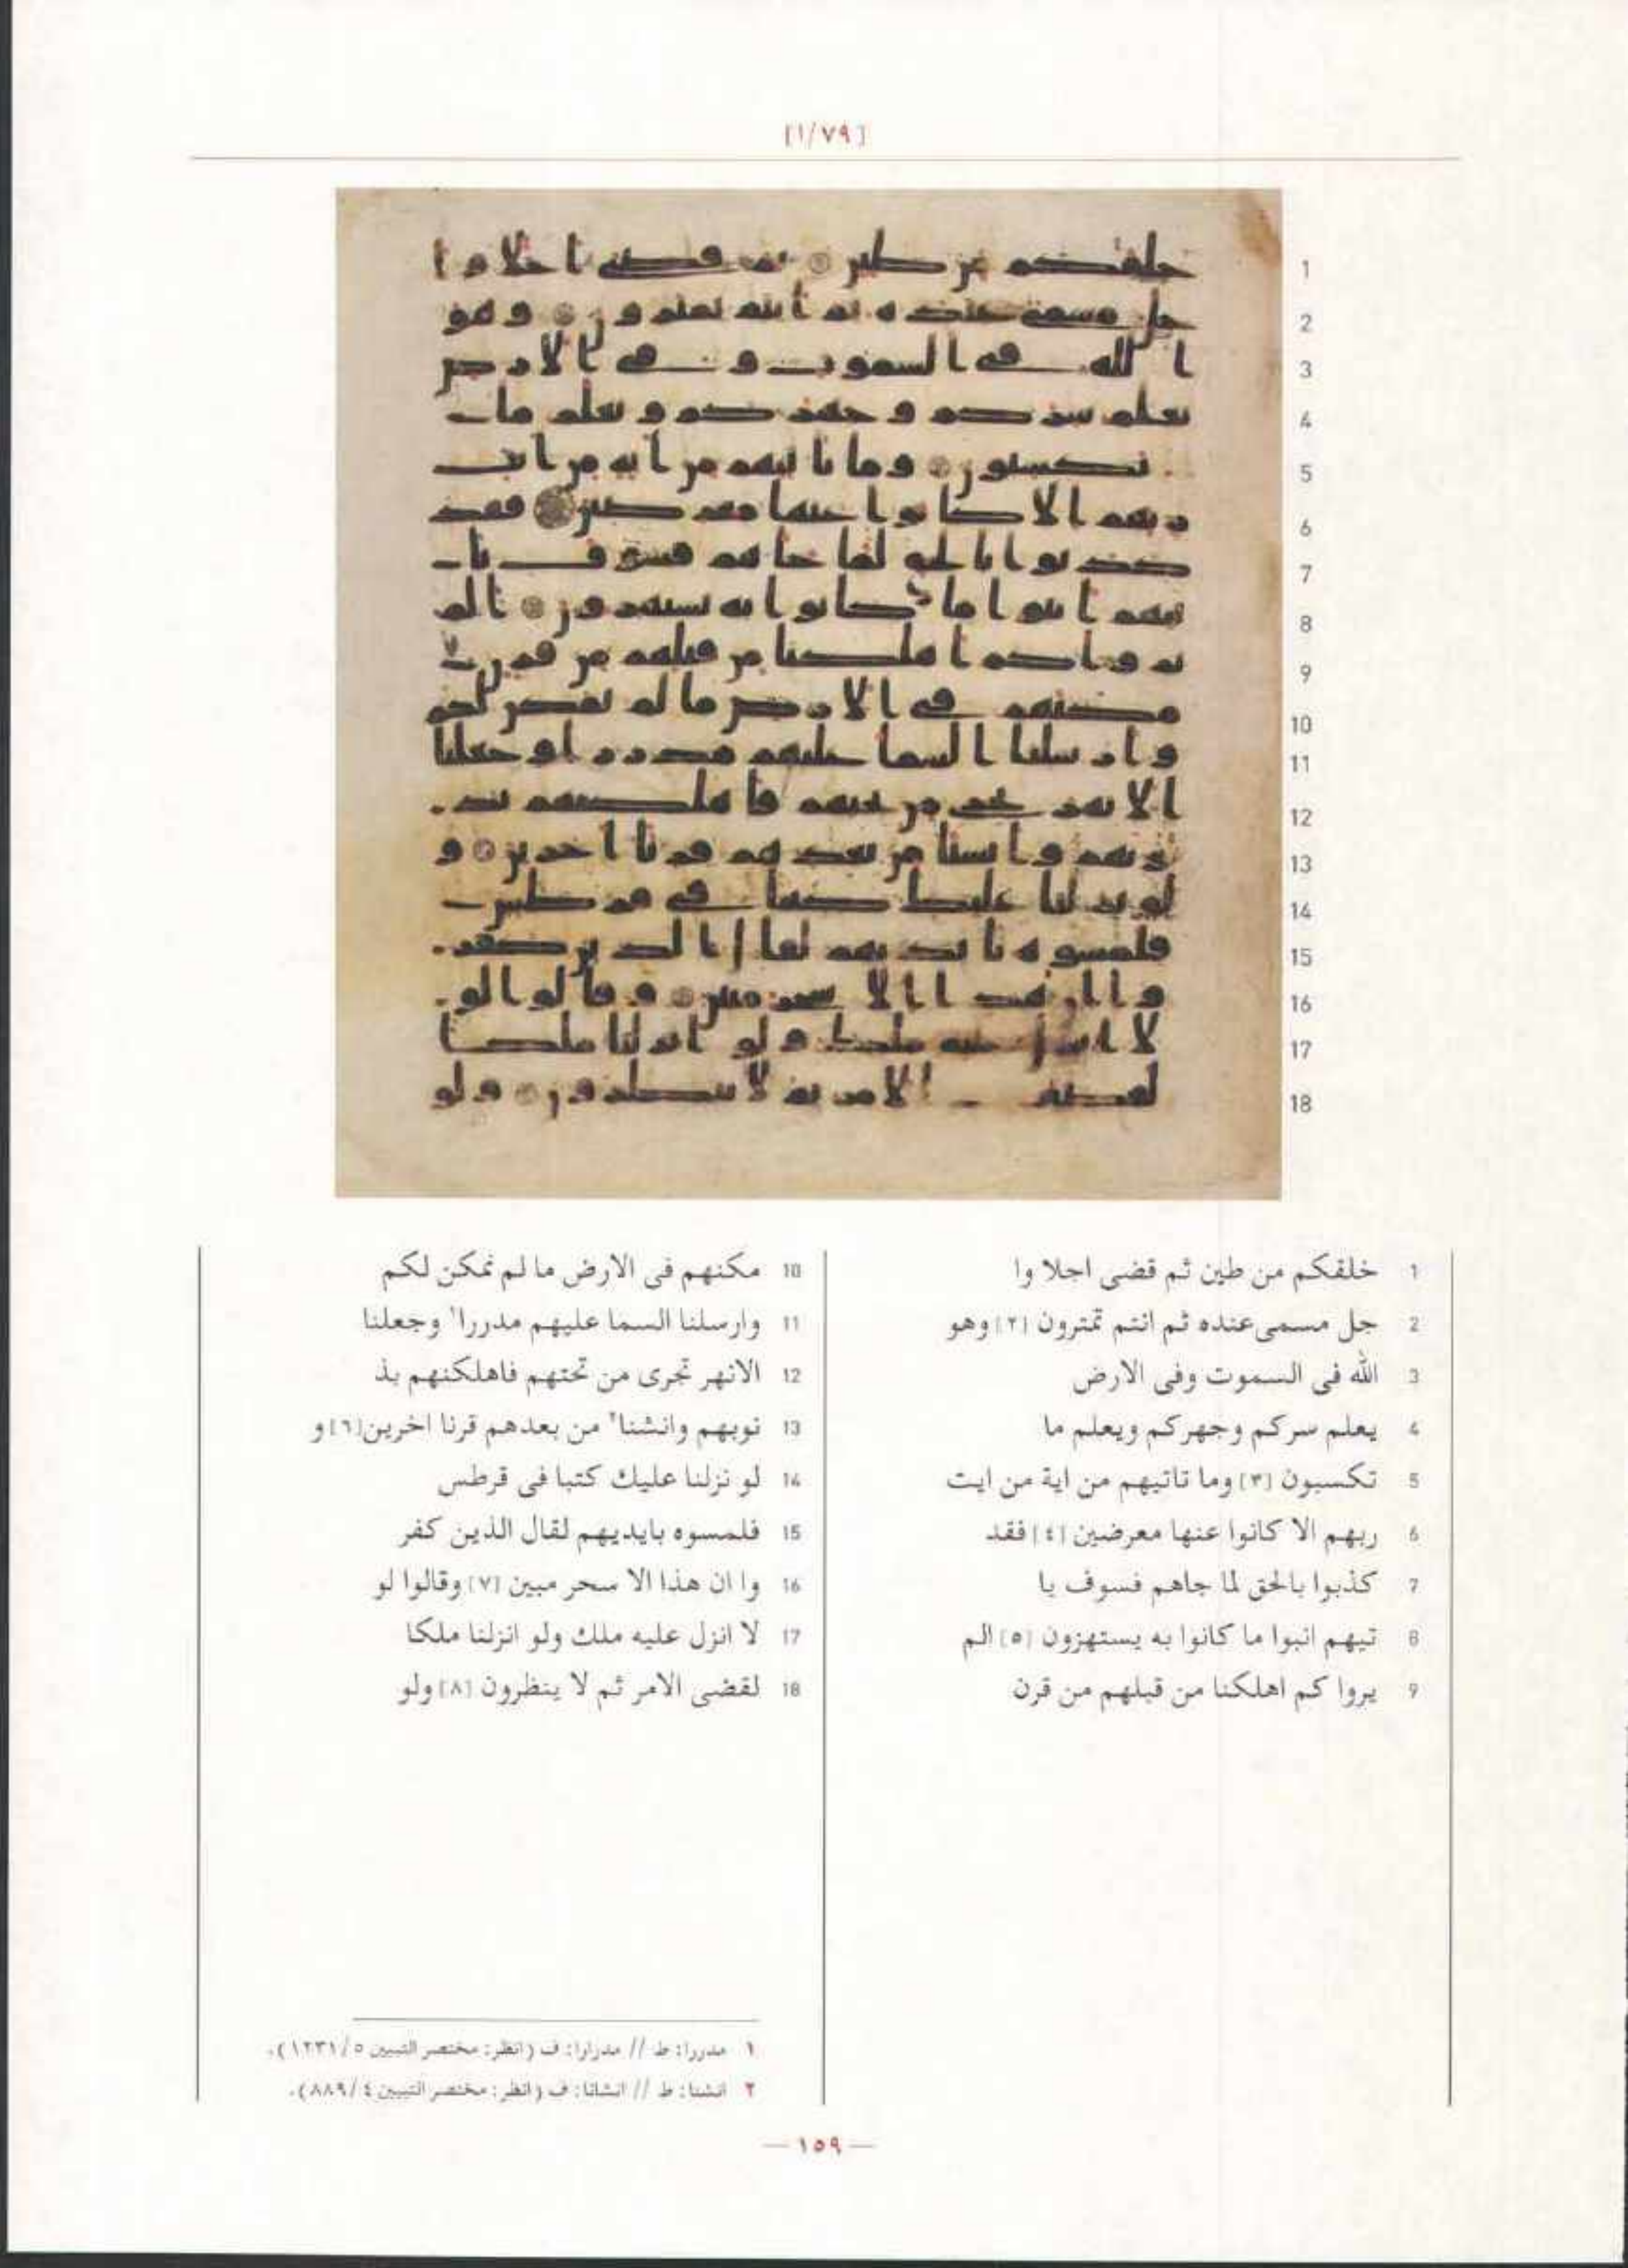 [١/٧٩]
1
2
3
4
5
6
7
8
9
10
11
12
13
14
15
16
17
18
1 خلقكم من طين ثم قضى اجلا وا
2 جل مسمى عنده ثم انتم تمترون [٢] وهو
3 الله فى السموت وفى الارض
4 يعلم سركم وجهركم ويعلم ما
5 تكسبون [٣] وما تاتيهم من اية من ايت
6 ربهم الا كانوا عنها معرضين [٤] فقد
7 كذبوا بالحق لما جاهم فسوف يا
8 تيهم انبوا ما كانوا به يستهزون [٥] الم
9 يروا كم اهلكنا من قبلهم من قرن
10 مكنهم فى الارض ما لم نمكن لكم
11 وارسلنا السما عليهم مدررا١ وجعلنا
12 الانهر تجرى من تحتهم فاهلكنهم بذ
13 نوبهم وانشنا٢ من بعدهم قرنا اخرين [٦] و
14 لو نزلنا عليك كتبا فى قرطس
15 فلمسوه بايديهم لقال الذين كفر
16 وا ان هذا الا سحر مبين [٧] وقالوا لو
17 لا انزل عليه ملك ولو انزلنا ملكا
18 لقضى الامر ثم لا ينظرون [٨] ولو
١ مدررا: ط // مدرارا: ف (انظر: مختصر التبيين ٥/١٢٣١).
٢ انشنا: ط // انشانا: ف (انظر: مختصر التبيين ٤/٨٨٩).
— ١٥٩ —